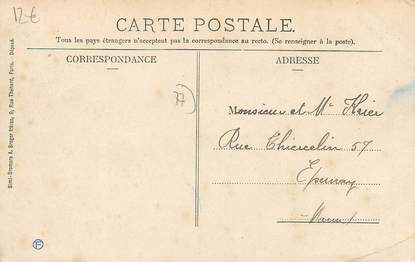 12€
CARTE POSTALE.
Tous les pays étrangers n'acceptent pas la correspondance au recto. (Se renseigner à la poste).
CORRESPONDANCE
ADRESSE
77
Monsieur et Mᵉ
Rue Thiercelin 57
Epernay
Marne
Simi-Bromure A. Breger frères, 9, Rue Thénard, Paris. Déposé.